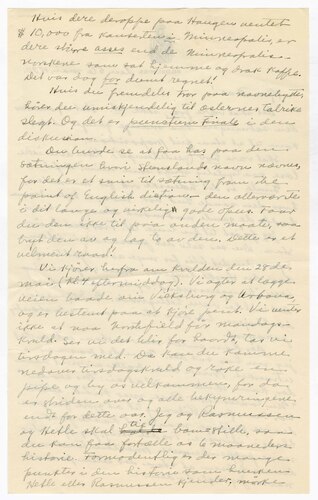 Hvis dere deroppe paa Haugen ventet
$10,000 fra kunsten i Minneapolis, er
dere større asses end de Minneapolis-
norskene som sat hjemme og drak kaffe.
Det var dog for dumt regnet!
Hvis du fremdeles tror paa navnebytter,
hører du umiskjendelig til æslernes talrike
slegt. Og det er punctum finale i denne
diskussion.
Du burde se at faa has paa den
sætningen hvori Stenslands navn nævnes,
for det er et sting til sætning from the
point of English diction den allerværste
i dit lange og virkelig gode opus. Faar
du den ikke til paa anden maate, saa
bryt den av og lag to av den. Dette er et
velment raad!
Vi kjører herfra om kvelden den 28de
mai (kl. 4 eftermiddag). Vi agter at lægge
veien baade om Vicksburg og
og er bestemt paa at kjøre pent. Vi venter
ikke at naa Northfield før mandags-
kveld. Ser vi det lider for haardt, tar vi
tirsdagen med. Da kan du komme
nedover tirsdagskveld og røke en
pipe og by os velkommen, for da
er striden over og alle bekymringene
endt for dette aar. Jeg og Rasmussen
og Helle skal være bomstille, saa
du kan faa fortælle os 6 maaneders
historie. Formodentlig er der mange
punkter i den historie som hverken
Helle eller Rasmussen kjender,